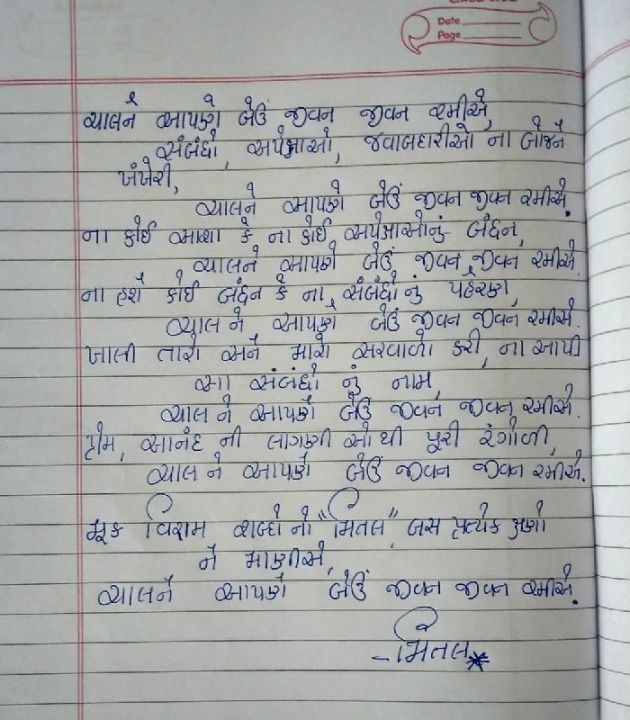 Date
Page
ચાલને આપણે બેઉ જીવન જીવન રમીએ,
સંબંધો, અપેક્ષાઓ, જવાબદારીઓ ના બોજને
ખંખેરી,
ચાલને આપણે બેઉં જીવન જીવન રમીએ.
ના કોઈ આશા કે ના કોઈ અપેક્ષાઓનું બંધન,
ચાલને આપણે બેઉં જીવન જીવન રમીએ.
ના હશે કોઈ બંધન કે ના સંબંધોનું પહેરણ,
ચાલ ને આપણે બેઉં જીવન જીવન રમીએ.
ખાલી તારો અને મારો સરવાળો કરી, ના આપી
આ સંબંધો નું નામ,
ચાલ ને આપણે બેઉં જીવન જીવન રમીએ.
પ્રેમ, આનંદ ની લાગણી ઓ થી પૂરી રંગોળી,
ચાલ ને આપણે બેઉં જીવન જીવન રમીએ.
મૂક વિરામ શબ્દો નો "મિતલ", બસ પ્રત્યેક ક્ષણો
ને માણીએ,
ચાલને આપણે બેઉં જીવન જીવન રમીએ.
- મિતલ*